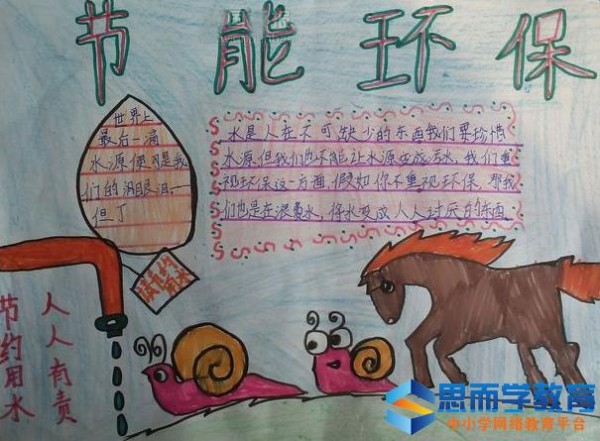 节能环保
世界上
最后一滴
水源便是我
们的眼泪——
但丁
水是人在不可缺少的东西我们要珍惜
水源但我们也不能让水源生成污水,我们重
视环保这一方面,假如你不重视环保,那我
们也是在浪费水,待水变成人人讨厌的东西
节约用水
人人有责
思而学教育
中小学网络教育平台